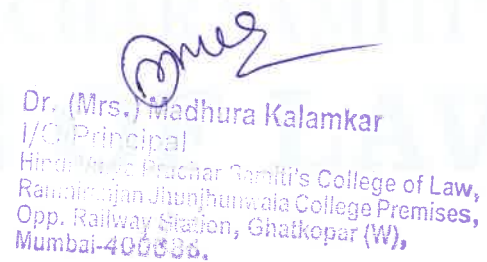 Dr. (Mrs.) Madhura Kalamkar
I/C Principal
Hindi Vidya Prachar Samiti's College of Law,
Ramniranjan Jhunjhunwala College Premises,
Opp. Railway Station, Ghatkopar (W),
Mumbai-400086.